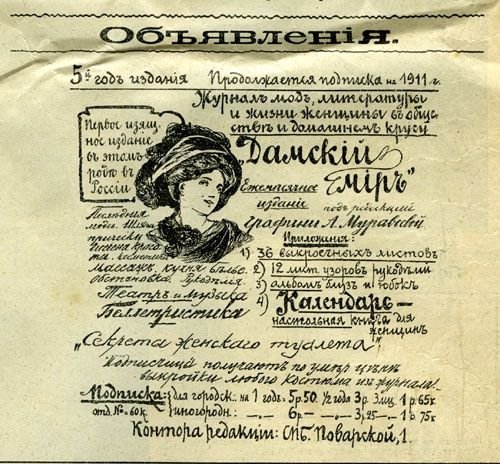 Объявленія.
5й годъ изданія Продолжается подписка на 1911 г.
Журналъ модъ, литературы
и жизни женщины въ обще-
ствѣ и домашнемъ кругу
Первое изящ-
ное изданіе
въ этомъ
родѣ въ
Россіи
„Дамскій
міръ"
Ежемѣсячное
изданіе
подъ редакціей
графини А. Муравьевой
Послѣднія
моды. Шляпы
прически
Гигіена красо-
та. косметика
массажъ, кухня бѣлье.
обстановка. Рукодѣлія.
Театръ и Музыка
Беллетристика
Приложенія:
1) 36 выкроечныхъ листовъ
2) 12 лист. узоровъ рукодѣлій
3) альбомъ блузъ и юбокъ
4) Календарь —
настольная книга для
женщинъ
„Секреты женскаго туалета"
Подписчицы получаютъ по умѣр. цѣнѣ
выкройки любого костюма изъ журнала!
Подписка: для городск.: на 1 годъ 5р.50. ½ года 3р. 3 мц. 1 р. 65к
отд. №-60к. иногородн.: —.— 6р.— —.— 3р.25 —.— 1 р. 75к
Контора редакціи: СПБ. Поварской, 1.